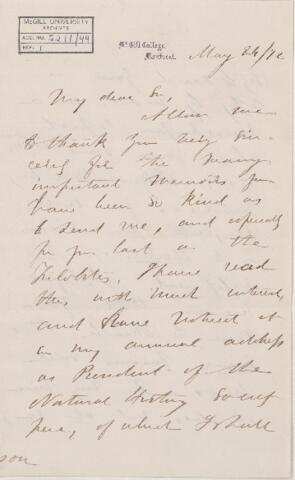 McGILL UNIVERSITY
ARCHIVES
ACC. NO. 2211/44
REF. 1
McGill College,
Montreal.
May 24/72
My dear Sir,
Allow me
to thank you very sin-
cerely for the many
important Memoirs you
have been so kind as
to send me, and especially
for your last on the
Trilobites. I have read
this with much interest
and have noticed it
in my annual address
as President of the
Natural History Society
here, of which I shall